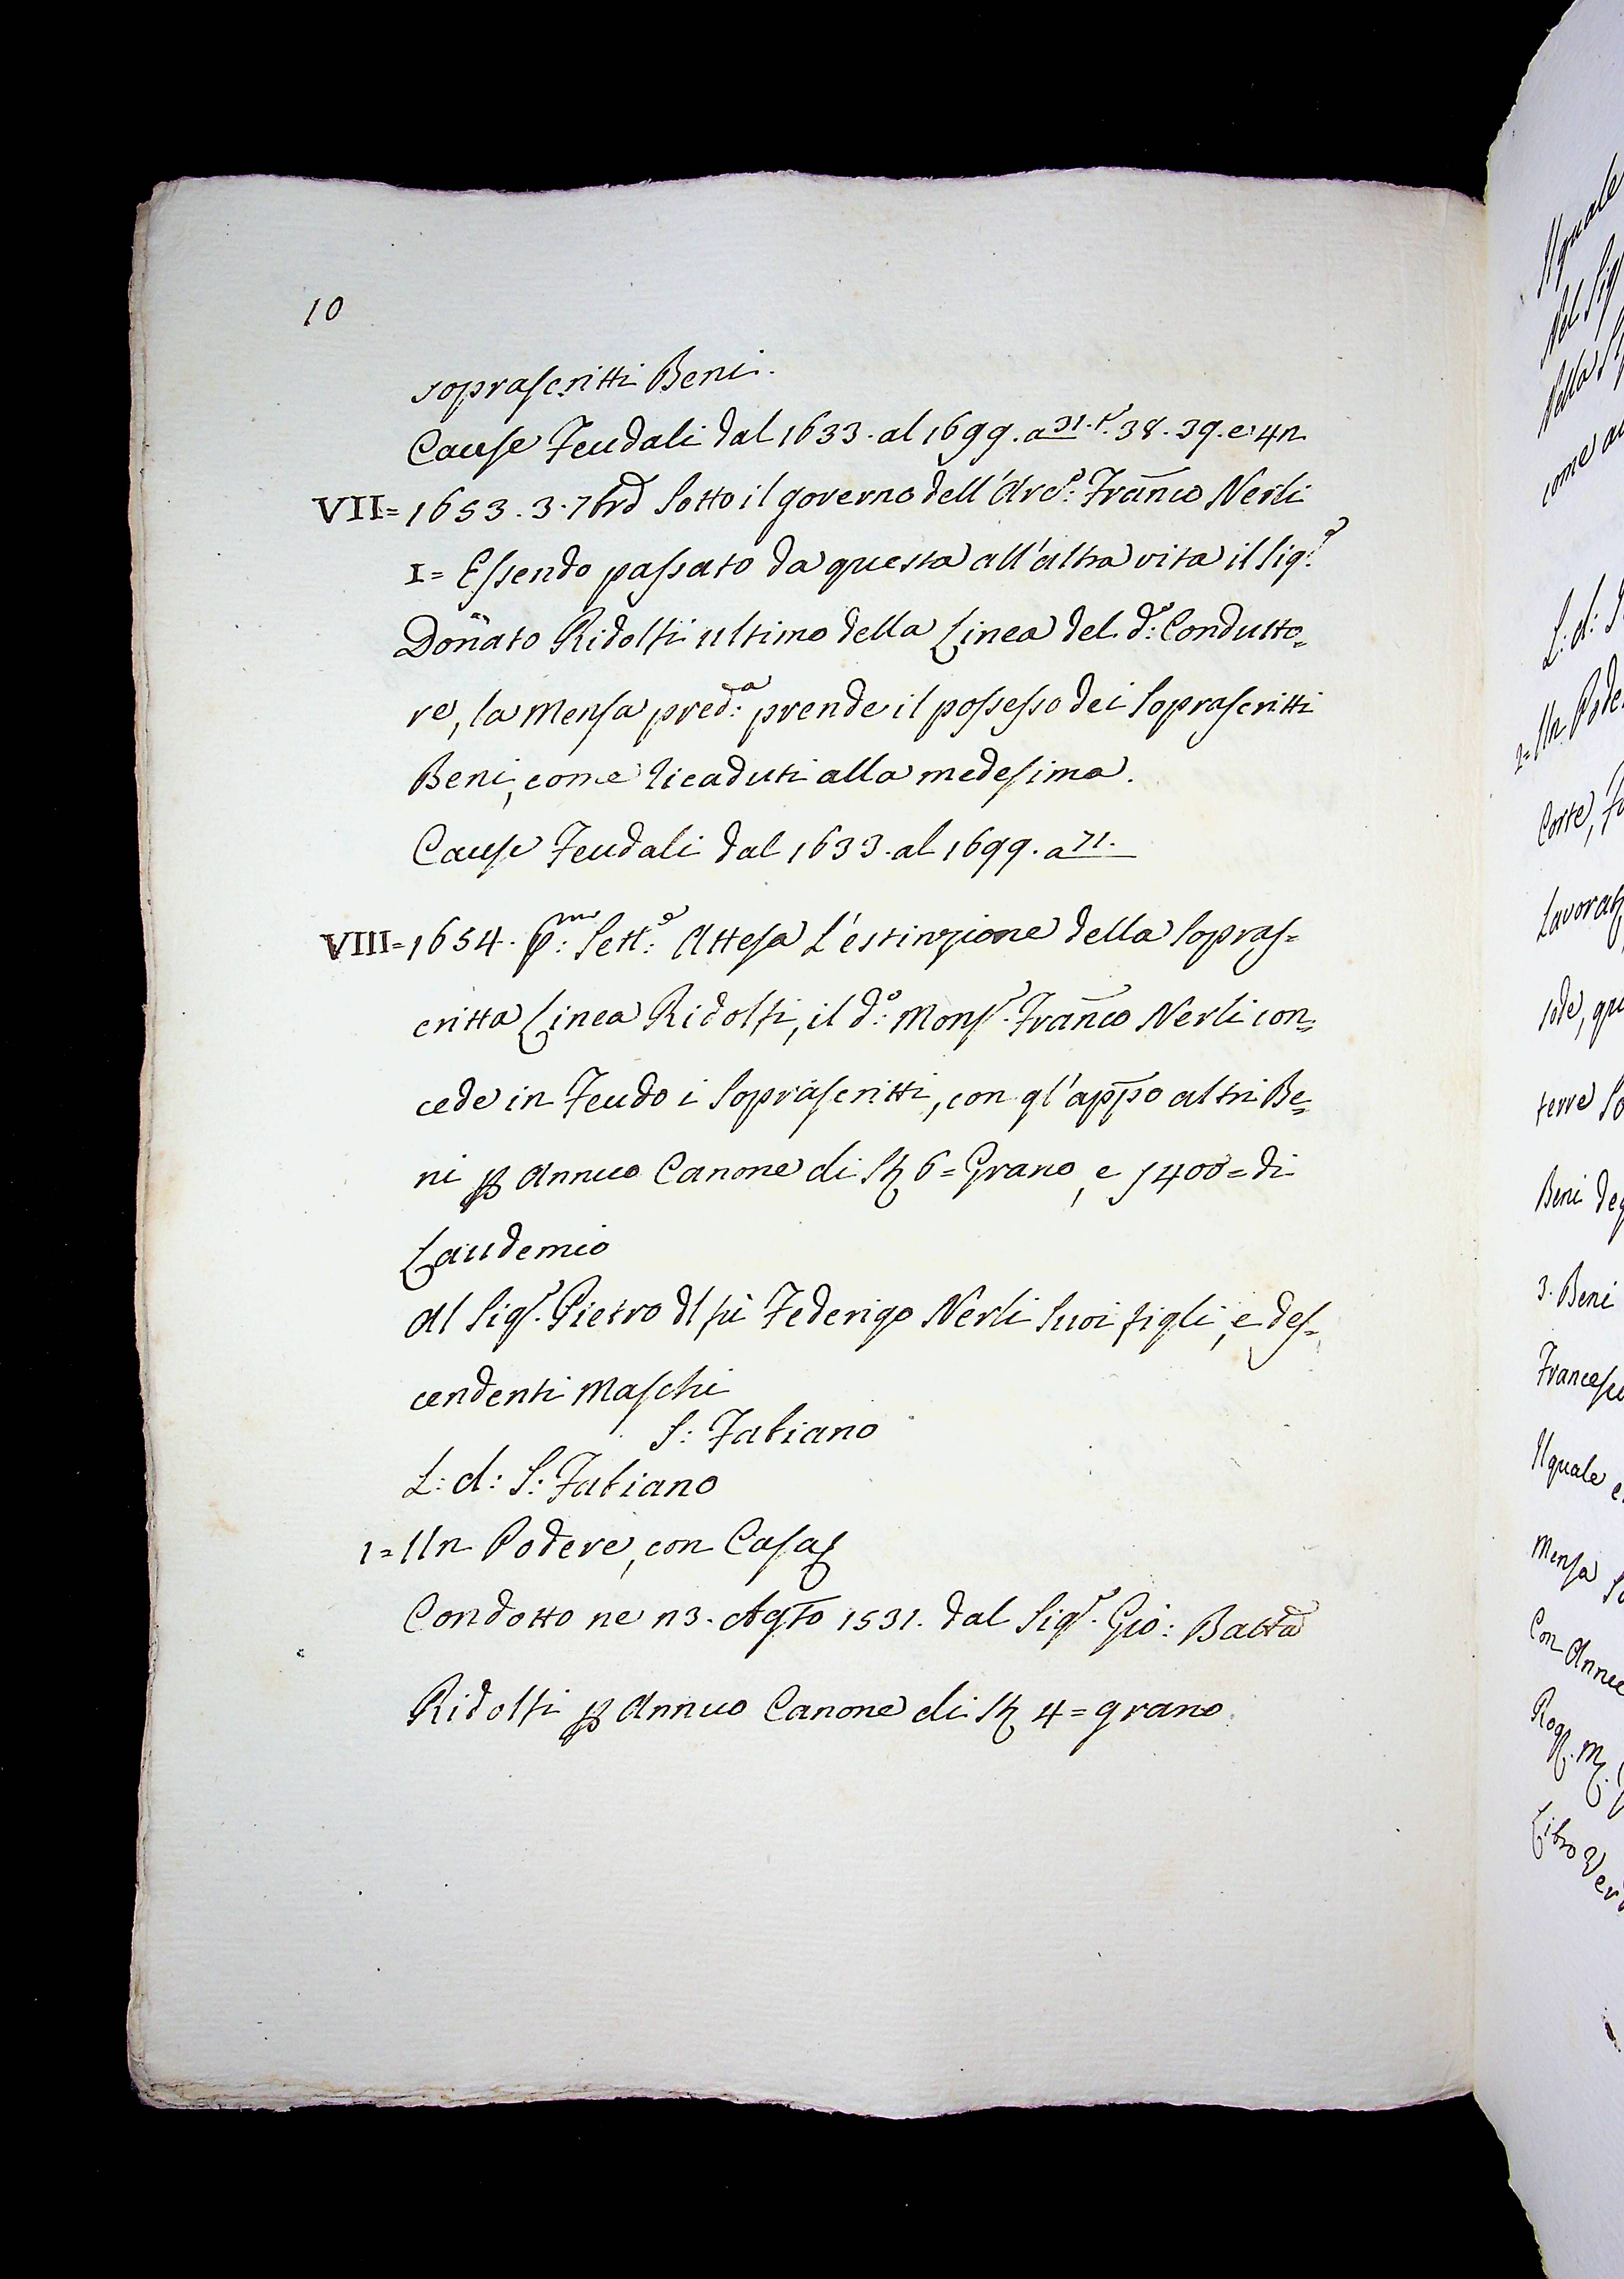 10
soprascritti Beni.
Cause Feudali dal 1633. al 1699. a 31. t. 38. 39. e: 42
VII= 1653. 3. 7bre Sotto il governo dell'Arc.º: Franco Nerli
I= Essendo passato da questa all'altra vita il Sig.e
Donnato Ridolfi ultimo della Linea del d.º: Condutto=
re, la Mensa pred.a: prende il possesso dei Soprascritti
Beni, come ricaduti alla medesima.
Cause Feudali dal 1633. al 1699. a 71.
VIII= 1654. P.mo: Sett.e: Attesa L'estinzione della Sopras=
critta Linea Ridolfi, il d.º: Mons.r Franco Nerli con=
cede in Feudo i Soprascritti, con gl'appo altri Be=
ni p Annuo Canone di St 6= Grano, e f 400= di
Laudemio
Al Sig.r Pietro dl fù Federigo Nerli Suoi figli, e des=
cendenti Maschi
S: Fabiano
L: d: S: Fabiano
1= Un Podere, con Casa
Condotto ne 23. Agto 1531. dal Sig.r Gio: Batta
Ridolfi p Annuo Canone di St 4= grano
Il quale
Nel Sig
Nella
come
L: d:
2= Un Pode
Corte,
Lavorat
sode, qu
terre So
Beni deg
3. Beni
Francesco
Il quale e
Mensa So
Con Annuo
Rog. M.
Libro Verd